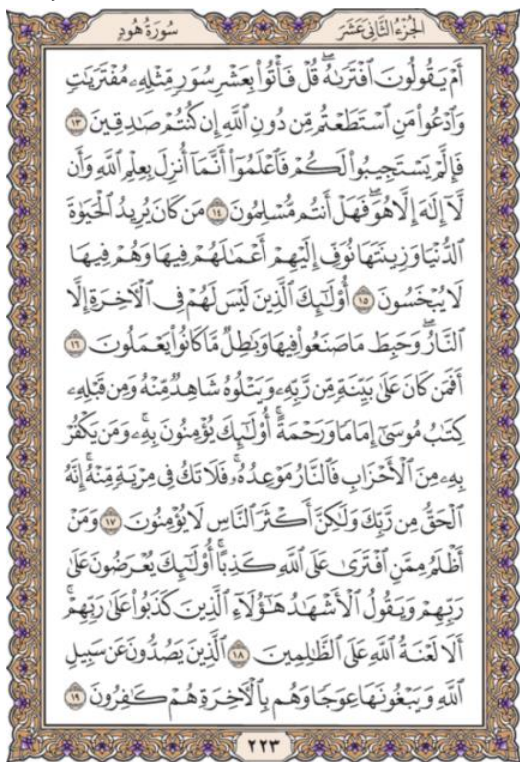 الجُزْءُ الثَّانِي عَشَرَ
سُورَةُ هُودٍ
أَمْ يَقُولُونَ ٱفْتَرَىٰهُۖ قُلْ فَأْتُوا۟ بِعَشْرِ سُوَرٍ مِّثْلِهِۦ مُفْتَرَيَٰتٍ
وَٱدْعُوا۟ مَنِ ٱسْتَطَعْتُم مِّن دُونِ ٱللَّهِ إِن كُنتُمْ صَٰدِقِينَ ١٣
فَإِلَّمْ يَسْتَجِيبُوا۟ لَكُمْ فَٱعْلَمُوٓا۟ أَنَّمَآ أُنزِلَ بِعِلْمِ ٱللَّهِ وَأَن
لَّآ إِلَٰهَ إِلَّا هُوَۖ فَهَلْ أَنتُم مُّسْلِمُونَ ١٤ مَن كَانَ يُرِيدُ ٱلْحَيَوٰةَ
ٱلدُّنْيَا وَزِينَتَهَا نُوَفِّ إِلَيْهِمْ أَعْمَٰلَهُمْ فِيهَا وَهُمْ فِيهَا
لَا يُبْخَسُونَ ١٥ أُو۟لَٰٓئِكَ ٱلَّذِينَ لَيْسَ لَهُمْ فِى ٱلْءَاخِرَةِ إِلَّا
ٱلنَّارُۖ وَحَبِطَ مَا صَنَعُوا۟ فِيهَا وَبَٰطِلٌ مَّا كَانُوا۟ يَعْمَلُونَ ١٦
أَفَمَن كَانَ عَلَىٰ بَيِّنَةٍ مِّن رَّبِّهِۦ وَيَتْلُوهُ شَاهِدٌ مِّنْهُ وَمِن قَبْلِهِۦ
كِتَٰبُ مُوسَىٰٓ إِمَامًا وَرَحْمَةًۚ أُو۟لَٰٓئِكَ يُؤْمِنُونَ بِهِۦۚ وَمَن يَكْفُرْ
بِهِۦ مِنَ ٱلْأَحْزَابِ فَٱلنَّارُ مَوْعِدُهُۥۚ فَلَا تَكُ فِى مِرْيَةٍ مِّنْهُۚ إِنَّهُ
ٱلْحَقُّ مِن رَّبِّكَ وَلَٰكِنَّ أَكْثَرَ ٱلنَّاسِ لَا يُؤْمِنُونَ ١٧ وَمَنْ
أَظْلَمُ مِمَّنِ ٱفْتَرَىٰ عَلَى ٱللَّهِ كَذِبًاۚ أُو۟لَٰٓئِكَ يُعْرَضُونَ عَلَىٰ
رَبِّهِمْ وَيَقُولُ ٱلْأَشْهَٰدُ هَٰٓؤُلَآءِ ٱلَّذِينَ كَذَبُوا۟ عَلَىٰ رَبِّهِمْۚ
أَلَا لَعْنَةُ ٱللَّهِ عَلَى ٱلظَّٰلِمِينَ ١٨ ٱلَّذِينَ يَصُدُّونَ عَن سَبِيلِ
ٱللَّهِ وَيَبْغُونَهَا عِوَجًا وَهُم بِٱلْءَاخِرَةِ هُمْ كَٰفِرُونَ ١٩
٢٢٣